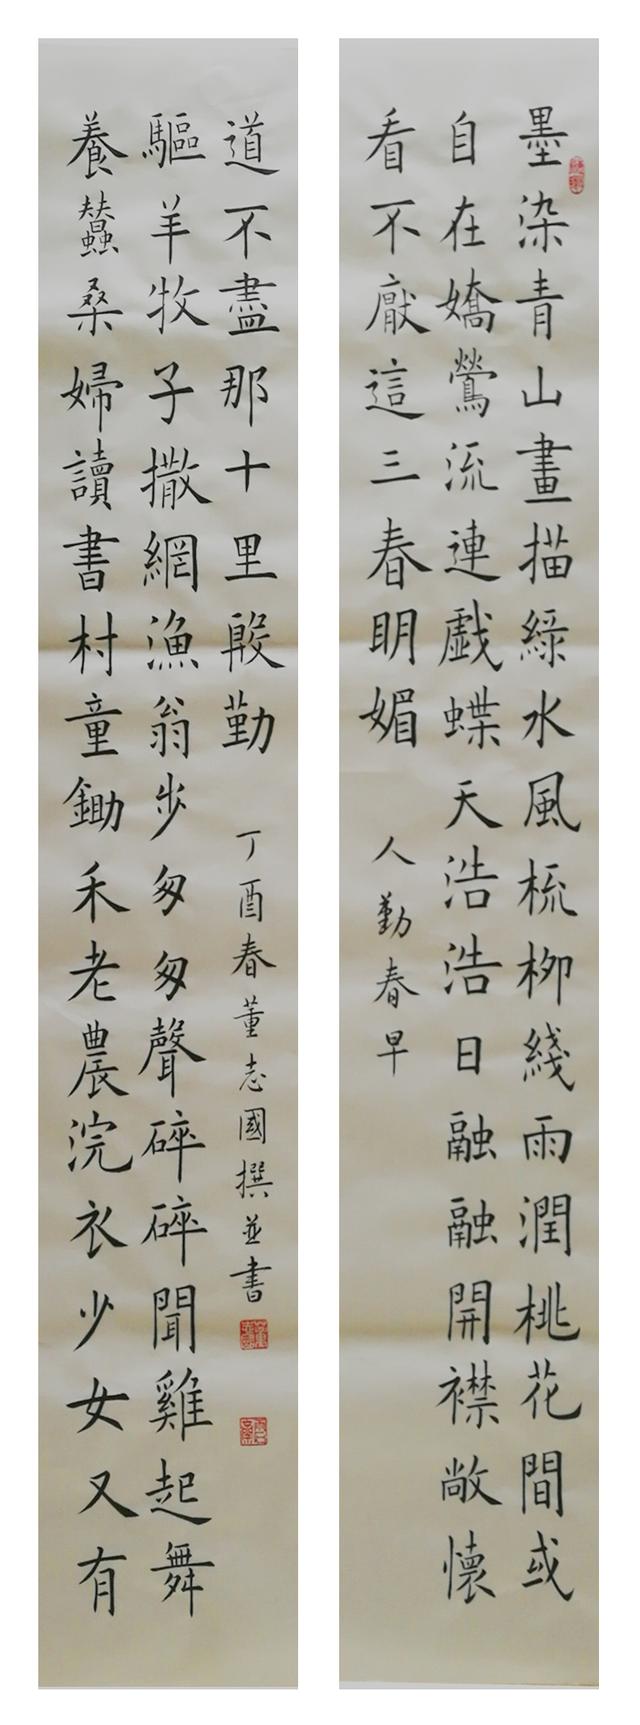 墨染青山畫描綠水風梳柳綫雨潤桃花間或
自在嬌鶯流連戲蝶天浩浩日融融開襟敞懷
看不厭這三春明媚
人勤春早
養蠶桑婦讀書村童鋤禾老農浣衣少女又有
驅羊牧子撒網漁翁步匆匆聲碎碎聞雞起舞
道不盡那十里殷勤
丁酉春董志國撰並書